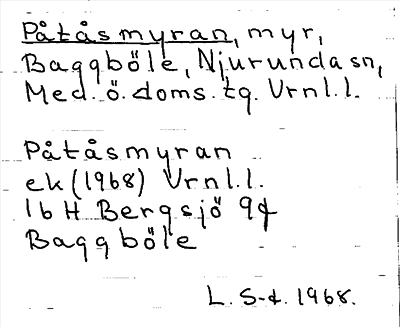 Påtåsmyran, myr,
Baggböle, Njurunda sn,
Med. ö. doms. tg. Vrnl. l.
Påtåsmyran
ek (1968) Vrnl. l.
16 H Bergsjö 9f
Baggböle
L. S-d. 1968.